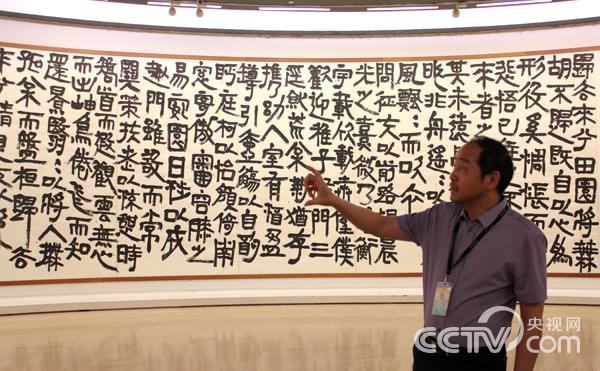 歸去來兮田園將蕪
胡不歸既自以心為
形役奚惆悵而
悲悟已往
來者之
其未遠
昨非舟遙〻以
風飄〻而吹衣
問征夫以前路恨晨
光之熹微乃瞻衡
宇載欣載奔僮僕
歡迎稚子候門三
徑就荒松菊猶存
攜幼入室有酒盈
樽引壺觴以自酌
眄庭柯以怡顏倚南
窗寄傲審容膝之
易安園日涉以成
趣門雖設而常
關策扶老以流憩時
矯首而遐觀雲無心
而出岫鳥倦飛而知
還景翳〻以將入撫
孤松而盤桓歸去
來兮請息交
CCTV.com 央视网